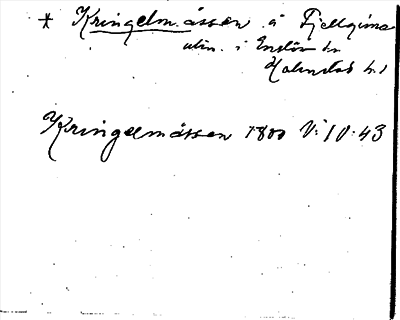 * Kringelm.åssen å Fjellgina
utm. i Enslöv sn
Halmstad hd
Kringelmåssen 1800 V:IV:43